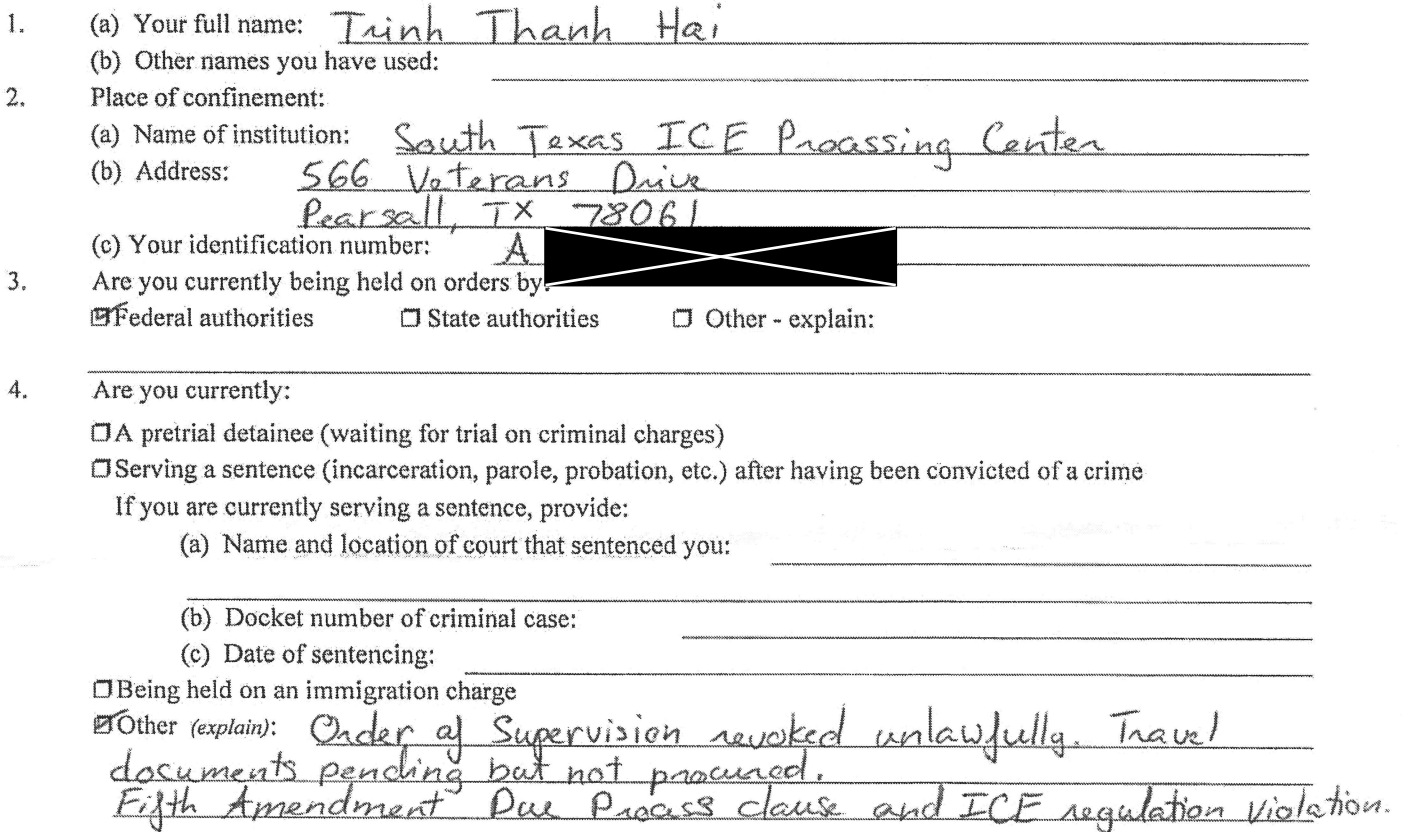 1. (a) Your full name: Trinh Thanh Hai
(b) Other names you have used:
2. Place of confinement:
(a) Name of institution: South Texas ICE Processing Center
(b) Address: 566 Veterans Drive
Pearsall, TX 78061
(c) Your identification number: A
3. Are you currently being held on orders by:
☑ Federal authorities ☐ State authorities ☐ Other - explain:
4. Are you currently:
☐ A pretrial detainee (waiting for trial on criminal charges)
☐ Serving a sentence (incarceration, parole, probation, etc.) after having been convicted of a crime
If you are currently serving a sentence, provide:
(a) Name and location of court that sentenced you:
(b) Docket number of criminal case:
(c) Date of sentencing:
☐ Being held on an immigration charge
☑ Other (explain): Order of Supervision revoked unlawfully. Travel
documents pending but not procured.
Fifth Amendment Due Process clause and ICE regulation violation.